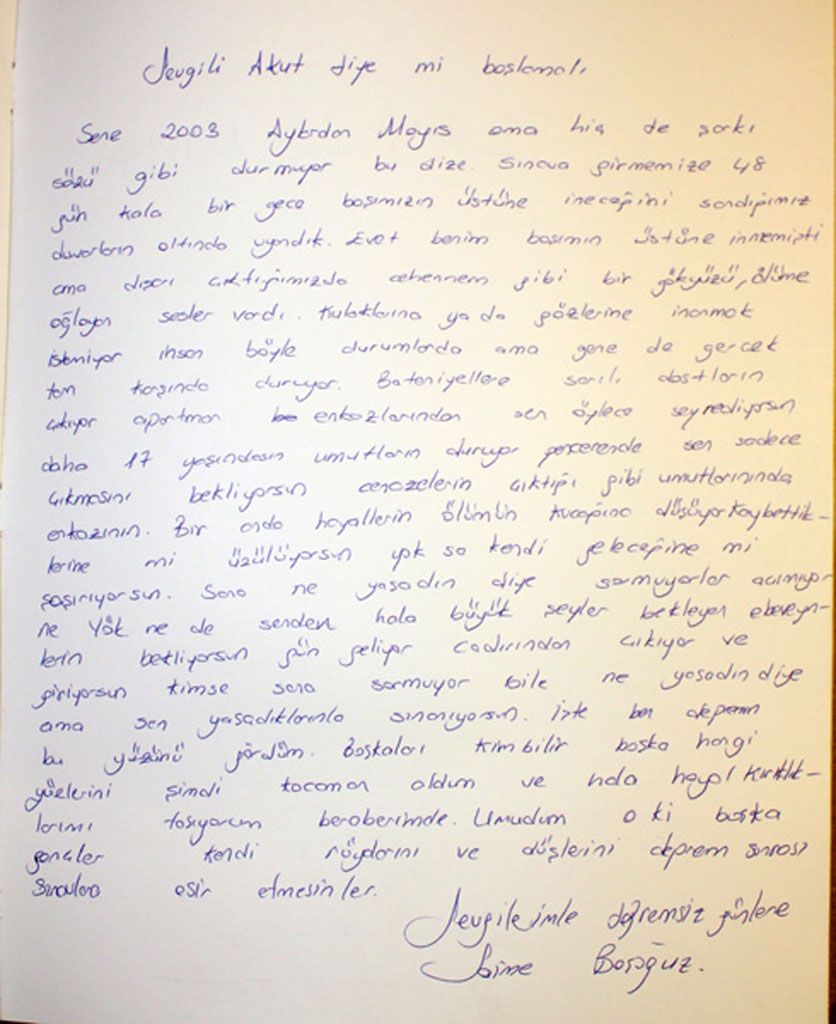 Sevgili Akut diye mi başlamalı
Sene 2003 Aylardan Mayıs ama hiç de şarkı
sözü gibi durmuyor bu dize. Sınava girmemize 48
gün kala bir gece başımızın üstüne ineceğini sandığımız
duvarların altında uyandık. Evet benim başımın üstüne inmemişti
ama dışarı çıktığımızda cehennem gibi bir gökyüzü, ölüme
ağlayan sesler vardı. Kulaklarına ya da gözlerine inanmak
istemiyor insan böyle durumlarda ama gene de gerçek
tam karşında duruyor. Bataniyellere sarılı dostların
çıkıyor apartman enkazlarından sen öylece seyrediyorsun
daha 17 yaşındasın umutların duruyor pencerende sen sadece
çıkmasını bekliyorsun cenazelerin çıktığı gibi umutlarınında
enkazının. Bir anda hayallerin ölümün kucağına düşüyor Kaybettik-
lerine mi üzülüyorsun yok sa kendi geleceğine mi
şaşırıyorsun. Sana ne yaşadın diye sormuyorlar acımıyor
ne YÖK ne de senden hala büyük şeyler bekleyen ebeveyn-
lerin bekliyorsun gün geliyor çadırından çıkıyor ve
giriyorsun kimse sana sormuyor bile ne yaşadın diye
ama sen yaşadıklarınla sınanıyorsun. İşte ben deprem
bu yüzünü gördüm. Başkaları kim bilir başka hangi
yüzlerini şimdi kocaman oldum ve hala hayal kırıklık-
larımı taşıyorum beraberimde. Umudum o ki başka
gençler kendi rüyalarını ve düşlerini deprem sonrası
Sınavlara esir etmesinler.
Sevgilerimle depremsiz günlere
Saime Başoğuz.